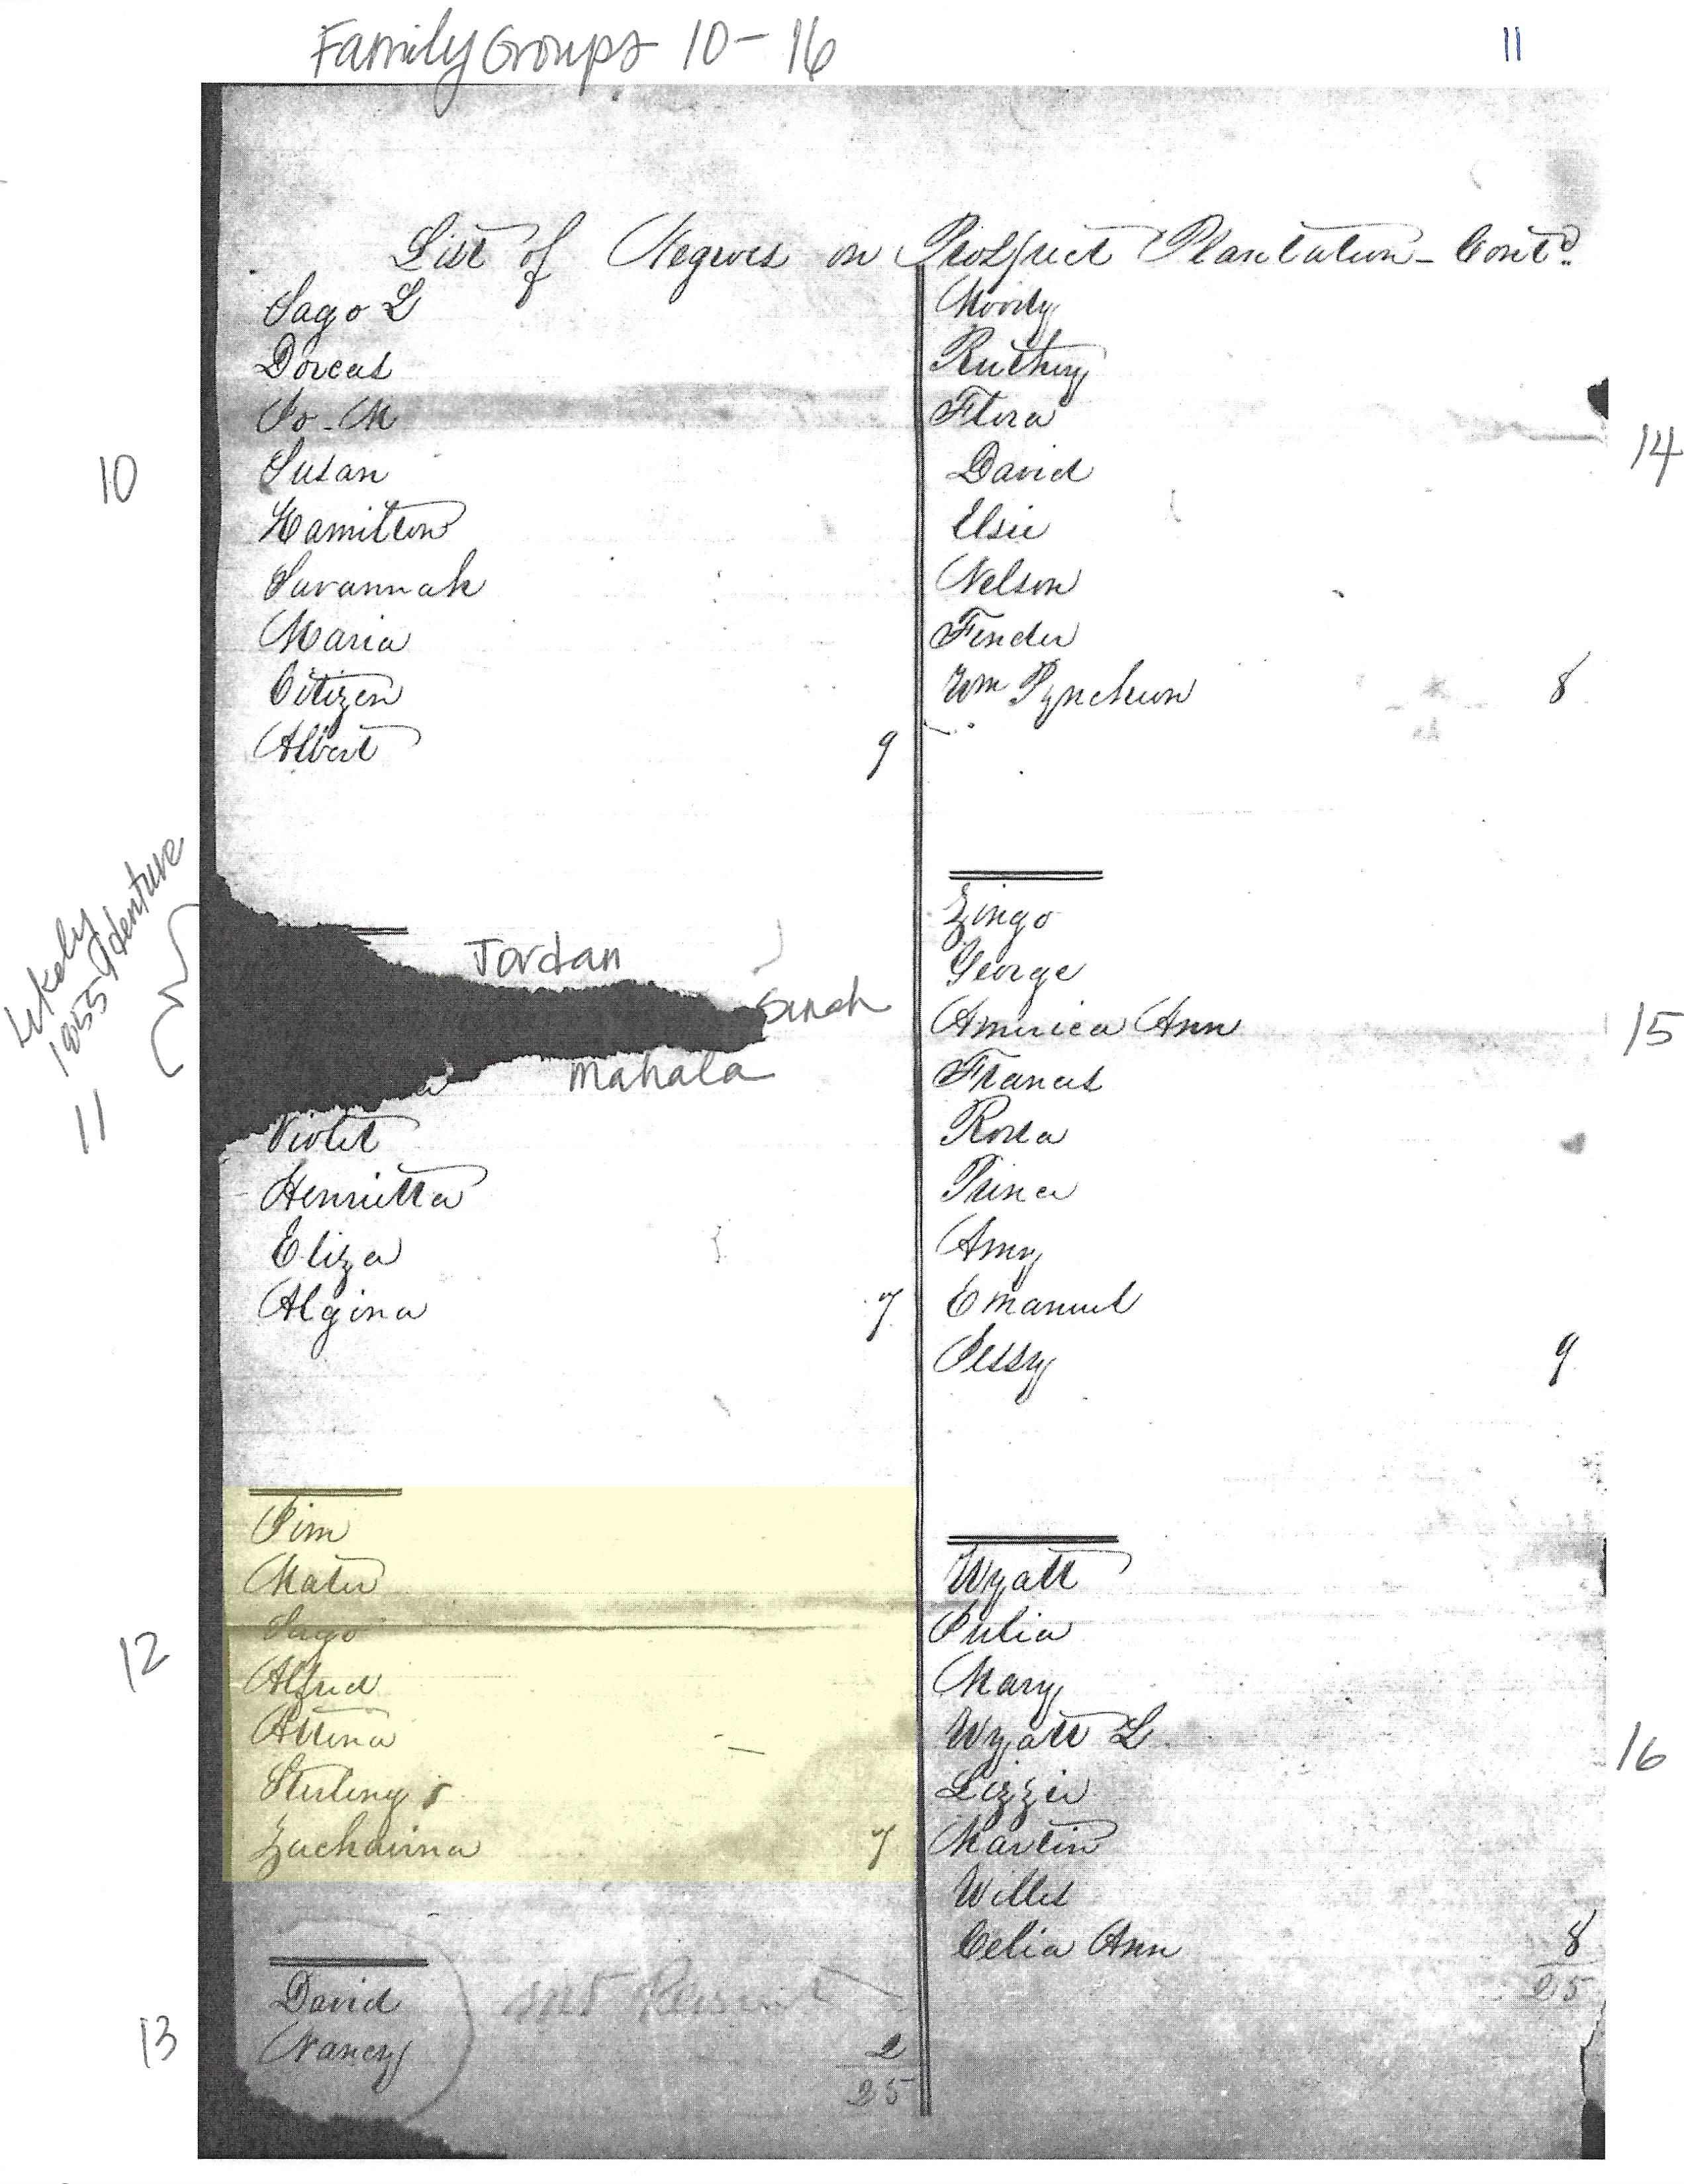 Family Groups 10-16
11
List of Negroes on Prospect Plantation - Contd.
Sago L
Dorcas
Jo. M
10
Susan
Hamilton
Savannah
Maria
Citizen
Albert 9
Likely
1855 Identure
Jordan
Sinah
Mahala
11
Violet
Henrietta
Eliza
Algina 7
Jim
Mater
Sago
12
Alfred
Attina
Sterling
Zacharina 7
David
not
13
Nancy 2
25
Moody
Ruthy
Flora
14
David
Elsie
Nelson
Fender
Wm Pyncheon 8
Zingo
George
America Ann
15
Frances
Rosa
Prince
Amy
Emanuel
Jessy 9
Wyatt
Julia
Mary
Wyatt L
16
Lizzie
Martin
Willis
Celia Ann 8
25